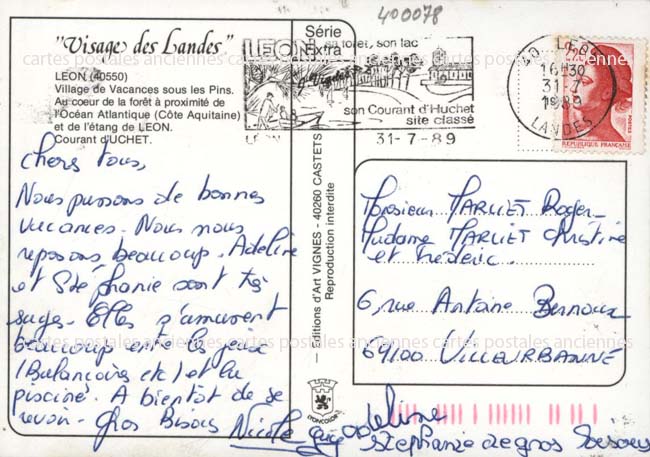 400078
"Visages des Landes"
LEON (40550)
Village de Vacances sous les Pins.
Au coeur de la forêt à proximité de
l'Océan Atlantique (Côte Aquitaine)
et de l'étang de LEON.
Courant d'UCHET.
Série
Extra
LEON
sa forêt, son lac
son Courant d'Huchet
site classé
LEON
31-7-89
40 LEON
16H30
31-7
1989
LANDES
2,20
POSTES
REPUBLIQUE FRANÇAISE
cartes postales anciennes cartes postales anciennes cartes postales anciennes
chers tous,
Nous passons de bonnes
vacances. Nous nous
reposons beaucoup. Adeline
et Stéphanie sont très
sages. Elles s'amusent
beaucoup entre les jeux
(Balancoires etc) et la
piscine. A bientôt de se
revoir. Gros Bisous
Nicole Guy Adeline
Stephanie de gros Bisous
Editions d'Art VIGNES - 40260 CASTETS
Reproduction interdite
LYONCOLOR
Monsieur MARLIET Roger
Madame MARLIET Christine
et Frédéric.
6, rue Antoine Bernoux
69100 VILLEURBANNE